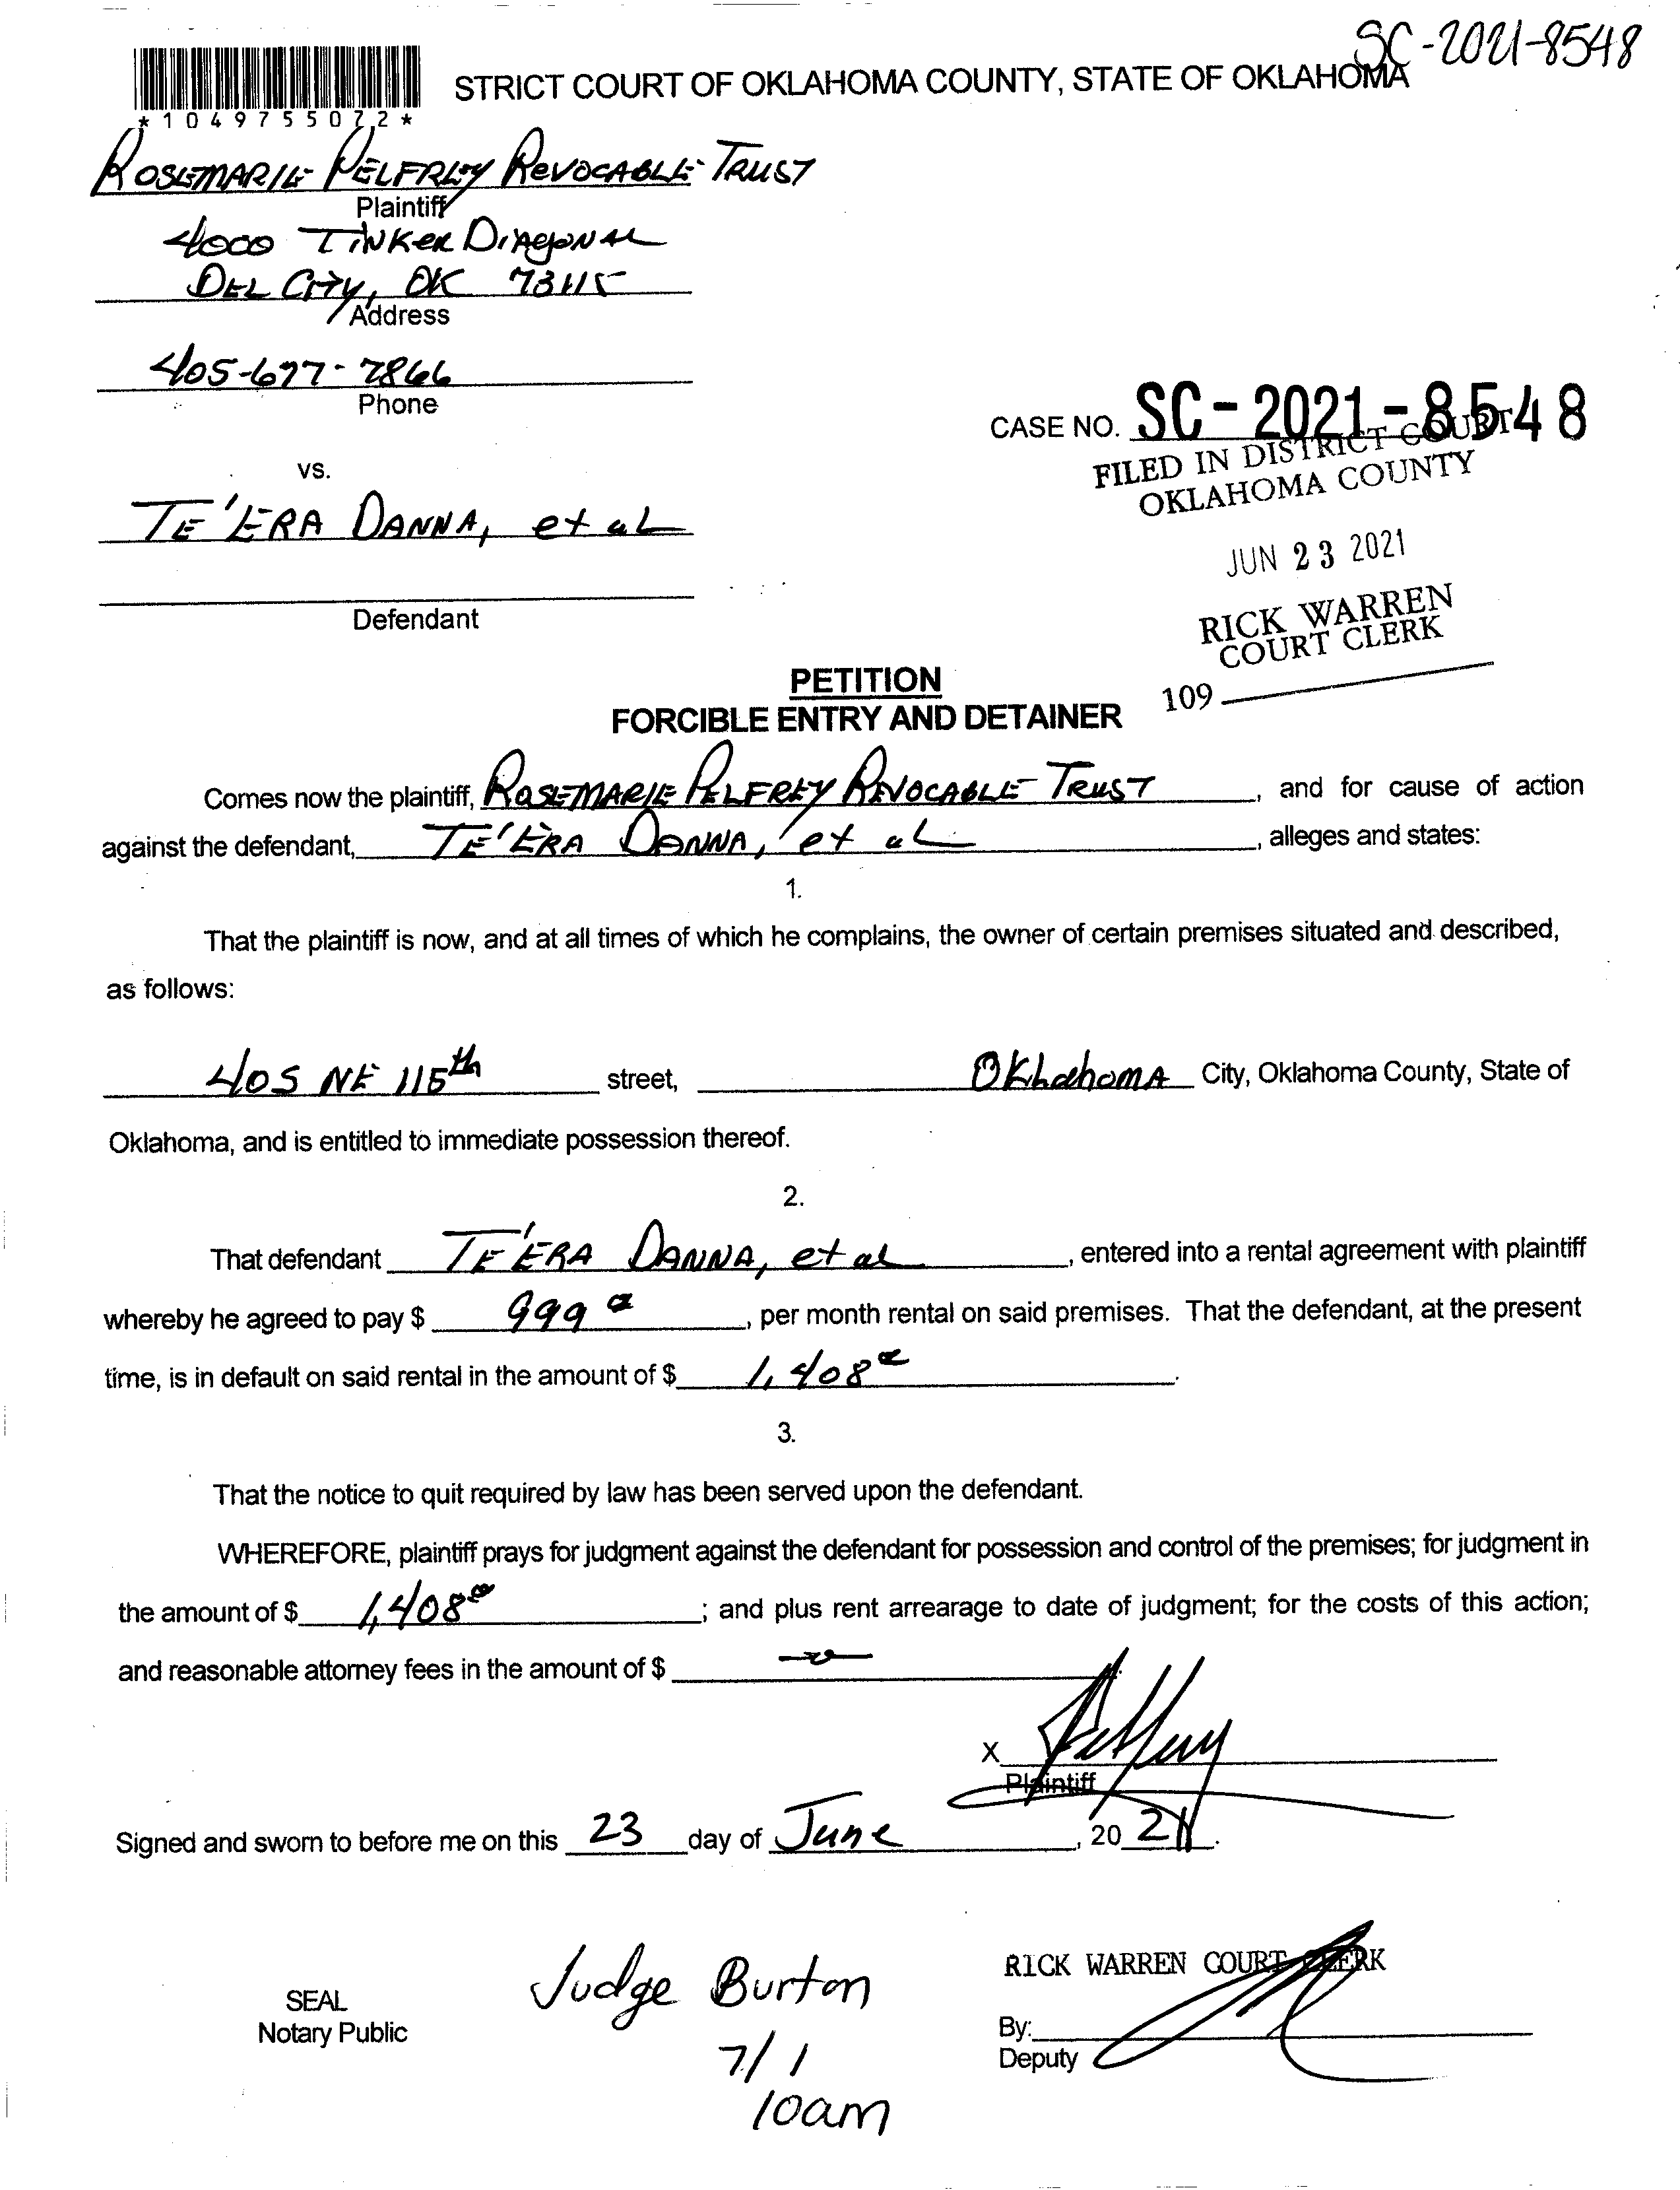 SC-2021-8548
STRICT COURT OF OKLAHOMA COUNTY, STATE OF OKLAHOMA
*1049755072*
ROSEMARIE PELFREY REVOCABLE TRUST
Plaintiff
4000 TINKER DIAGONAL
DEL CITY, OK 73115
Address
405-677-7866
Phone
CASE NO. SC-2021-8548
FILED IN DISTRICT COURT
OKLAHOMA COUNTY
vs.
TE'ERA DANNA, et al
JUN 23 2021
Defendant
RICK WARREN
COURT CLERK
109
PETITION
FORCIBLE ENTRY AND DETAINER
Comes now the plaintiff, ROSEMARIE PELFREY REVOCABLE TRUST, and for cause of action
against the defendant, TE'ERA DANNA, et al, alleges and states:
1.
That the plaintiff is now, and at all times of which he complains, the owner of certain premises situated and described,
as follows:
405 NE 115th street, OKlahomA City, Oklahoma County, State of
Oklahoma, and is entitled to immediate possession thereof.
2.
That defendant TE'ERA DANNA, et al, entered into a rental agreement with plaintiff
whereby he agreed to pay $ 999, per month rental on said premises. That the defendant, at the present
time, is in default on said rental in the amount of $ 1,408.
3.
That the notice to quit required by law has been served upon the defendant.
WHEREFORE, plaintiff prays for judgment against the defendant for possession and control of the premises; for judgment in
the amount of $ 1,408; and plus rent arrearage to date of judgment; for the costs of this action;
and reasonable attorney fees in the amount of $
X
Plaintiff
Signed and sworn to before me on this 23 day of June, 20 21.
RICK WARREN COURT CLERK
SEAL
Notary Public
Judge Burton
7/1
10am
By:
Deputy